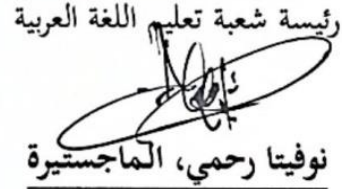 رئيسة شعبة تعليم اللغة العربية
نوفيتا رحمي، الماجستيرة